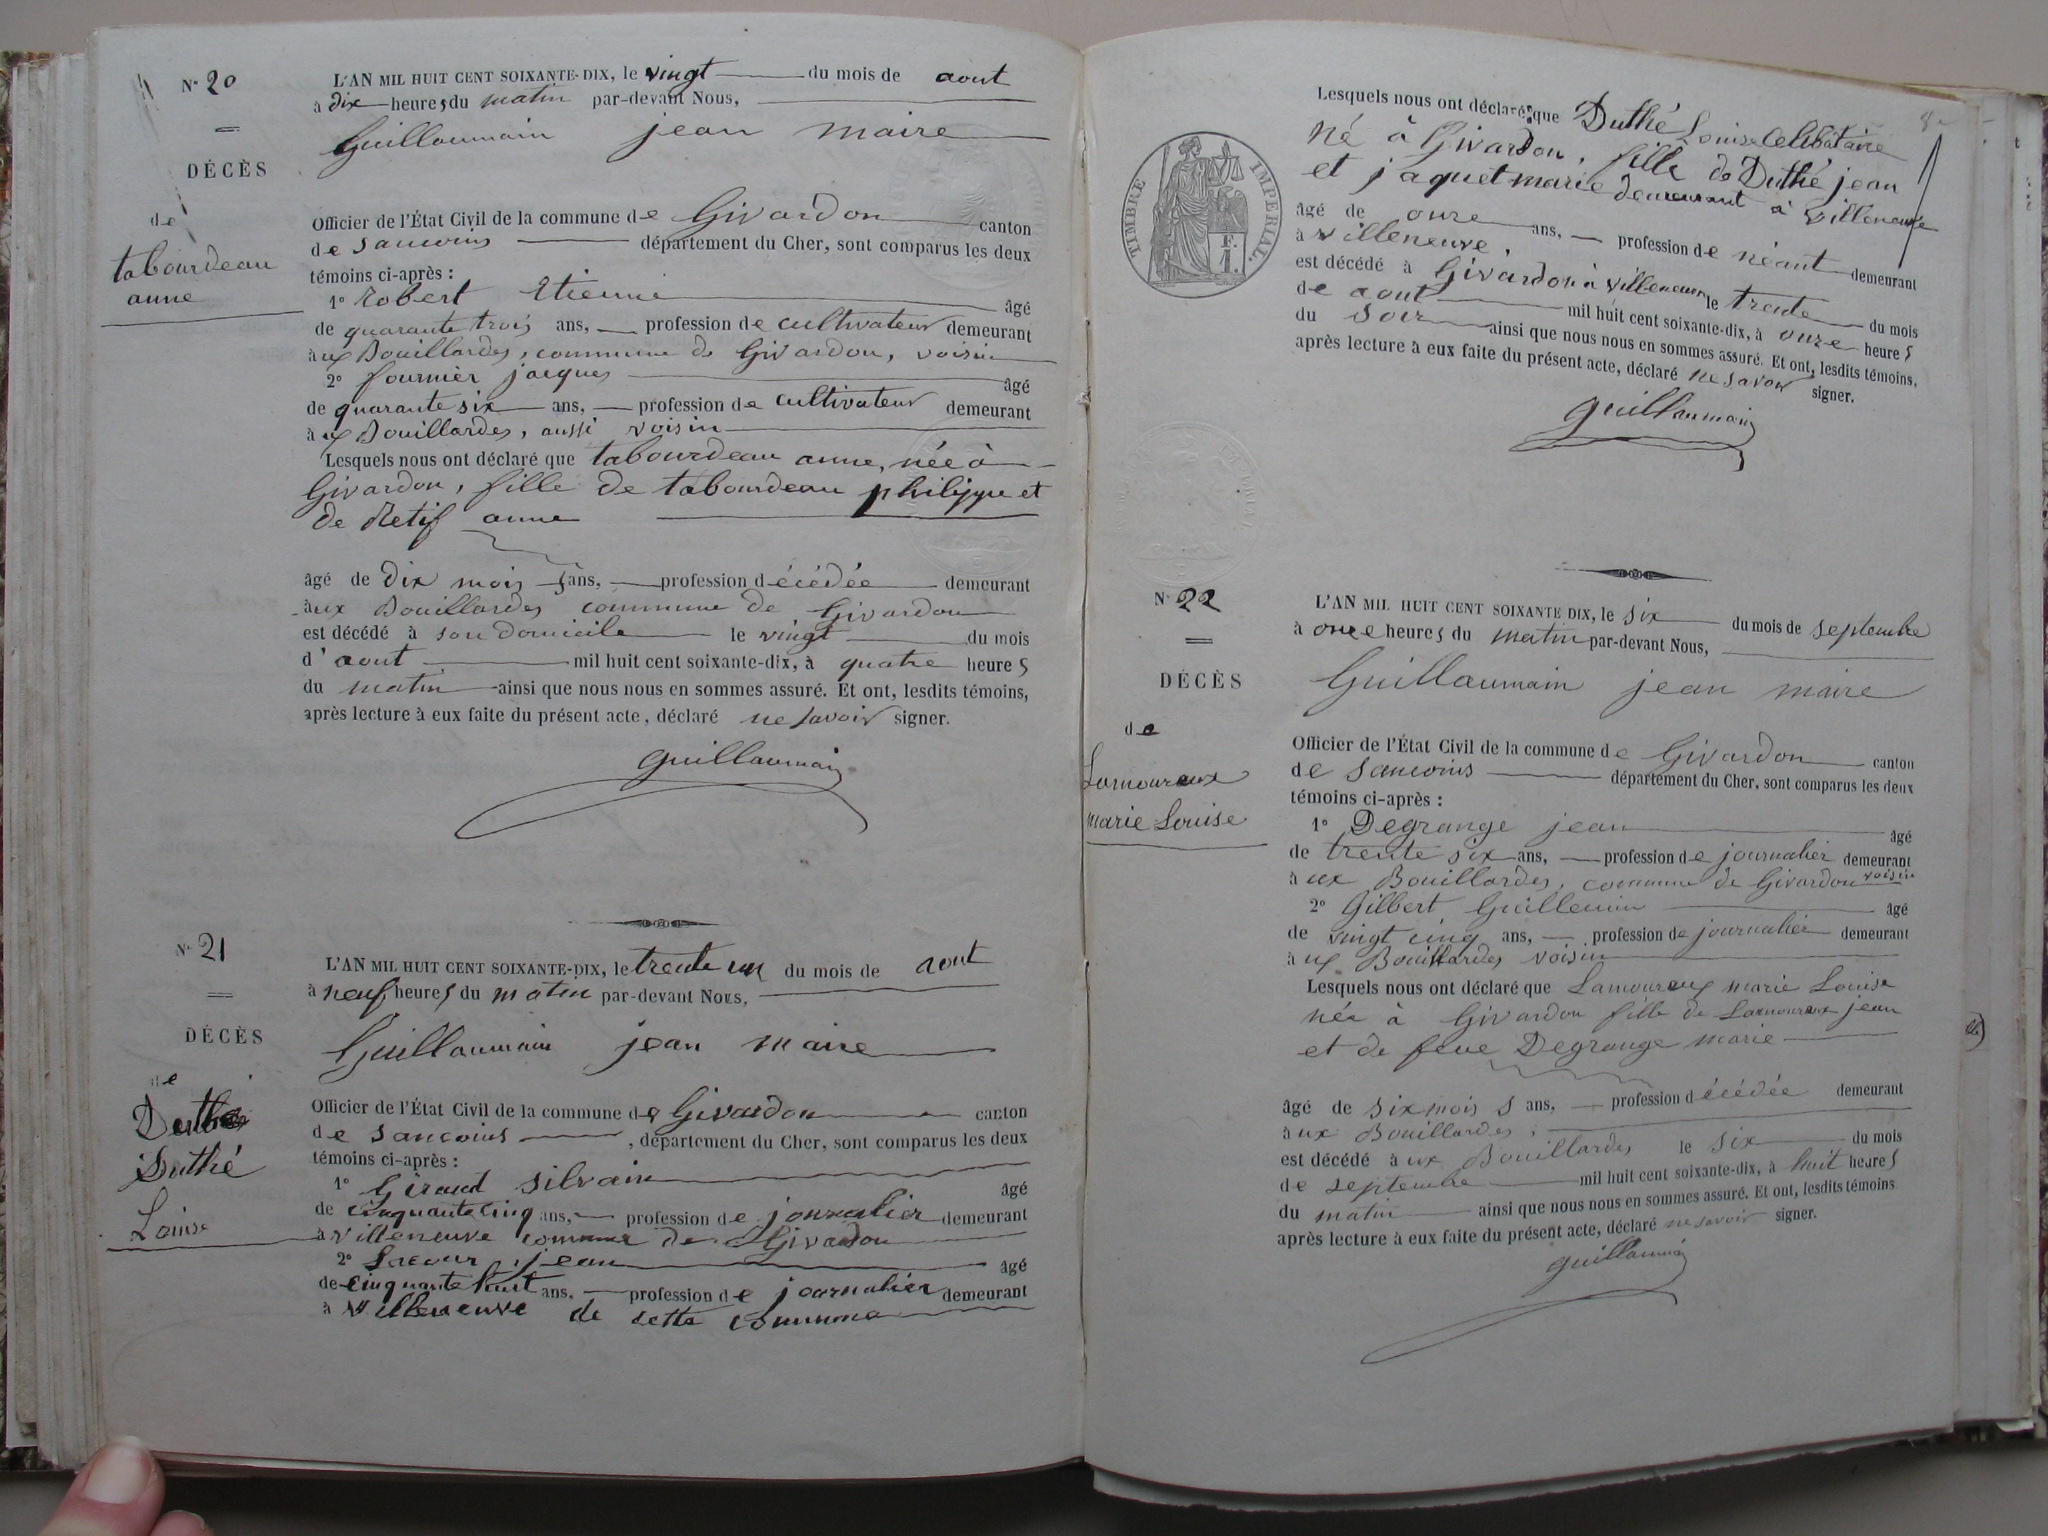 N° 20
DÉCÈS
de
tabourdeau
anne
L'AN MIL HUIT CENT SOIXANTE-DIX, le vingt du mois de aout
à dix heures du matin par-devant Nous,
Guillaumain jean maire
Officier de l'État Civil de la commune de Givardon canton
de Sancoins département du Cher, sont comparus les deux
témoins ci-après :
1° Robert Etienne âgé
de quarante trois ans, profession de cultivateur demeurant
aux Bouillardes, commune de Givardon, voisin
2° fournier jacques âgé
de quarante six ans, profession de cultivateur demeurant
aux Bouillardes, aussi voisin
Lesquels nous ont déclaré que tabourdeau anne, née à
Givardon, fille de tabourdeau philippe et
de Retif anne
âgé de dix mois ans, profession décédée demeurant
aux Bouillardes commune de Givardon
est décédé à son domicile le vingt du mois
d'aout mil huit cent soixante-dix, à quatre heures
du matin ainsi que nous nous en sommes assuré. Et ont, lesdits témoins,
après lecture à eux faite du présent acte, déclaré ne savoir signer.
guillaumain
N° 21
DÉCÈS
de
Duthé
Louise
L'AN MIL HUIT CENT SOIXANTE-DIX, le trente un du mois de aout
à neuf heures du matin par-devant Nous,
Guillaumain jean maire
Officier de l'État Civil de la commune de Givardon canton
de Sancoins, département du Cher, sont comparus les deux
témoins ci-après :
1° Giraud Silvain âgé
de cinquante cinq ans, profession de journalier demeurant
à villeneuve commune de Givardon
2° Lacour jean âgé
de cinquante huit ans, profession de journalier demeurant
à villeneuve de cette commune
TIMBRE IMPÉRIAL.
F.
1.
Lesquels nous ont déclaré que Duthé Louise Célibataire
né à Givardon, fille de Duthé jean
et jaquet marie demeurant à villeneuve
âgé de onze ans, profession de néant demeurant
à villeneuve,
est décédé à Givardon à villeneuve le trente du mois
de aout mil huit cent soixante-dix, à onze heures
du soir ainsi que nous nous en sommes assuré. Et ont, lesdits témoins,
après lecture à eux faite du présent acte, déclaré ne savoir signer.
guillaumain
N° 22
DÉCÈS
de
Lamoureux
marie Louise
L'AN MIL HUIT CENT SOIXANTE DIX, le six du mois de septembre
à onze heures du matin par-devant Nous,
Guillaumain jean maire
Officier de l'État Civil de la commune de Givardon canton
de Sancoins département du Cher, sont comparus les deux
témoins ci-après :
1° Degrange jean âgé
de trente six ans, profession de journalier demeurant
aux Bouillardes, commune de Givardon voisin
2° Gilbert Guillemin âgé
de vingt cinq ans, profession de journalier demeurant
aux Bouillardes voisin
Lesquels nous ont déclaré que Lamoureux marie Louise
née à Givardon fille de Lamoureux jean
et de feue Degrange marie
âgé de six mois ans, profession décédée demeurant
aux Bouillardes,
est décédé aux Bouillardes le six du mois
de septembre mil huit cent soixante-dix, à huit heures
du matin ainsi que nous nous en sommes assuré. Et ont, lesdits témoins
après lecture à eux faite du présent acte, déclaré ne savoir signer.
guillaumain